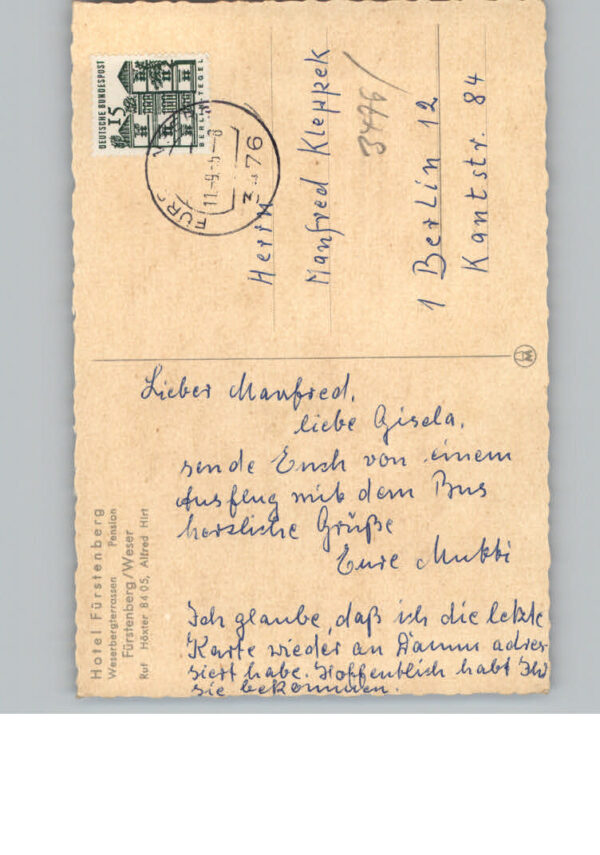 Hotel Fürstenberg
Weserbergterrassen Pension
Fürstenberg/Weser
Ruf Höxter 8405, Alfred Hirt
Lieber Manfred,
liebe Gisela,
sende Euch von einem
Ausflug mit dem Bus
herzliche Grüße
Eure Mukki
Ich glaube, daß ich die letzte
Karte wieder an Damm adres-
siert habe. Hoffentlich habt Ihr
sie bekommen.
DEUTSCHE BUNDESPOST
15
BERLIN-TEGEL
11.-9.
3476
3476/
Herrn
Manfred Kleppek
1 Berlin 12
Kantstr. 84